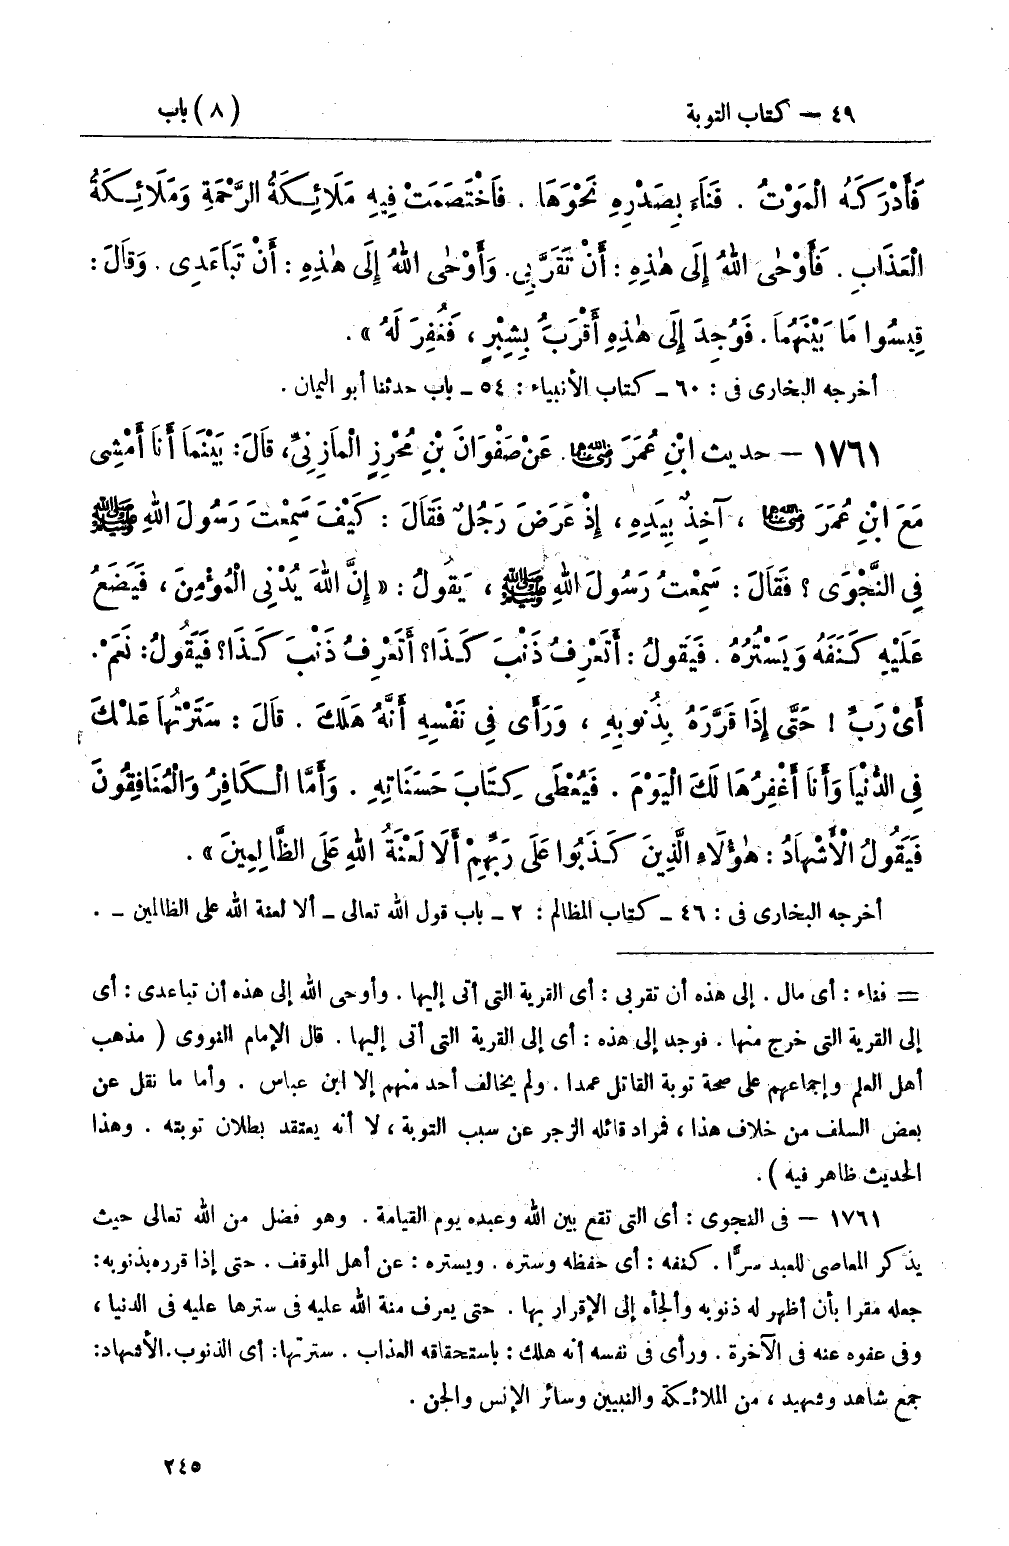 ٤٩ – كتاب التوبة (٨) باب
فَأَدْرَكَهُ الْمَوْتُ . فَنَاءَ بِصَدْرِهِ نَحْوَهَا . فَاخْتَصَمَتْ فِيهِ مَلَائِكَةُ الرَّحْمَةِ وَمَلَائِكَةُ
الْعَذَابِ . فَأَوْحٰى اللهُ إِلَى هٰذِهِ : أَنْ تَقَرَّبِى. وَأَوْحٰى اللهُ إِلَى هٰذِهِ : أَنْ تَبَاعَدِى . وَقَالَ :
قِيسُوا مَا بَيْنَهُمَا. فَوُجِدَ إِلَى هٰذِهِ أَقْرَبَُ بِشِبْرٍ ، فَغُفِرَ لَهُ » .
أخرجه البخارى فى : ٦٠ ـ كتاب الأنبياء : ٥٤ ـ باب حدثنا أبو اليمان .
١٧٦١ – حديث ابْنِ عُمَرَ رضي الله عنهما. عَنْ صَفْوَانَ بْنِ مُحْرِزٍ الْمَازِنِىِّ، قَالَ: بَيْنَمَا أَنَا أَمْشِى
مَعَ ابْنِ عُمَرَ رضي الله عنهما ، آخِذٌ بِيَدِهِ ، إِذْ عَرَضَ رَجُلٌ فَقَالَ : كَيْفَ سَمِعْتَ رَسُولَ اللهِ ﷺ
فِى النَّجْوَى ؟ فَقَالَ : سَمِعْتُ رَسُولَ اللهِ ﷺ ، يَقُولُ : « إِنَّ اللهَ يُدْنِى الْمُؤْمِنَ ، فَيَضَعُ
عَلَيْهِ كَنَفَهُ وَيَسْتُرُهُ . فَيَقُولُ : أَتَعْرِفُ ذَنْبَ كَذَا؟ أَتَعْرِفُ ذَنْبَ كَذَا؟ فَيَقُولُ: نَعَمْ.
أَىْ رَبِّ ! حَتَّى إِذَا قَرَّرَهُ بِذُنُوبِهِ ، وَرَأَى فِى نَفْسِهِ أَنَّهُ هَلَكَ . قَالَ : سَتَرْتُهَا عَلَيْكَ
فِى الدُّنْيَا وَأَنَا أَغْفِرُهَا لَكَ الْيَوْمَ . فَيُعْطَى كِتَابَ حَسَنَاتِهِ . وَأَمَّا الْكَافِرُ وَالْمُنَافِقُونَ
فَيَقُولُ الْأَشْهَادُ : هٰؤُلَاءِ الَّذِينَ كَذَبُوا عَلَى رَبِّهِمْ أَلَا لَعْنَةُ اللهِ عَلَى الظَّالِمِينَ » .
أخرجه البخارى فى : ٤٦ ـ كتاب المظالم : ٢ ـ باب قول الله تعالى ـ ألا لعنة الله على الظالمين ـ .
= فناء : أى مال . إلى هذه أن تقربى : أى القرية التى أتى إليها . وأوحى الله إلى هذه أن تباعدى : أى
إلى القرية التى خرج منها . فوجد إلى هذه : أى إلى القرية التى أتى إليها . قال الإمام النووى ( مذهب
أهل العلم وإجماعهم على صحة توبة القاتل عمدا . ولم يخالف أحد منهم إلا ابن عباس . وأما ما نقل عن
بعض السلف من خلاف هذا ، فمراد قائله الزجر عن سبب التوبة ، لا أنه يعتقد بطلان توبته . وهذا
الحديث ظاهر فيه ) .
١٧٦١ – فى النجوى : أى التى تقع بين الله وعبده يوم القيامة . وهو فضل من الله تعالى حيث
يذكر المعاصى للعبد سرًّا . كنفه : أى حفظه وستره . ويستره : عن أهل الموقف . حتى إذا قرره بذنوبه :
جعله مقرا بأن أظهر له ذنوبه وألجأه إلى الإقرار بها . حتى يعرف منة الله عليه فى سترها عليه فى الدنيا ،
وفى عفوه عنه فى الآخرة . ورأى فى نفسه أنه هلك : باستحقاقه العذاب . سترتها : أى الذنوب.الأشهاد:
جمع شاهد وشهيد ، من الملائكة والنبيين وسائر الإنس والجن .
٢٤٥